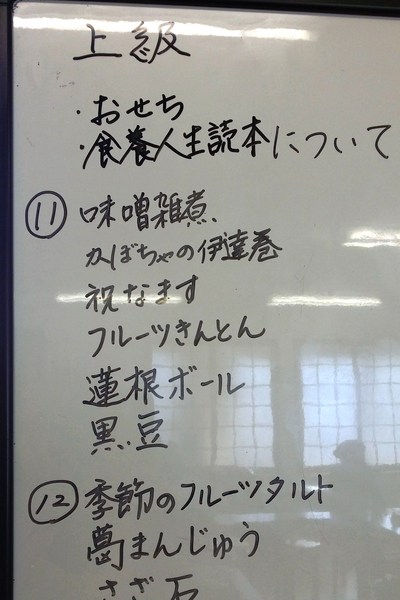 上級
・おせち
・食養人生読本について
⑪ 味噌雑煮
かぼちゃの伊達巻
祝なます
フルーツきんとん
蓮根ボール
黒豆
⑫ 季節のフルーツタルト
葛まんじゅう